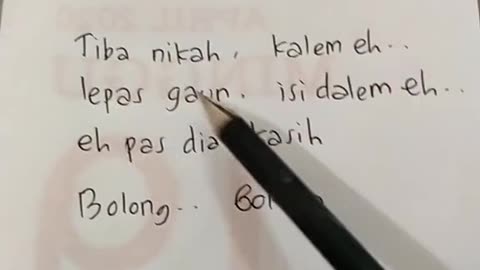 Tiba nikah, kalem eh..
lepas gaun. isi dalem eh..
eh pas dia kasih
Bolong..